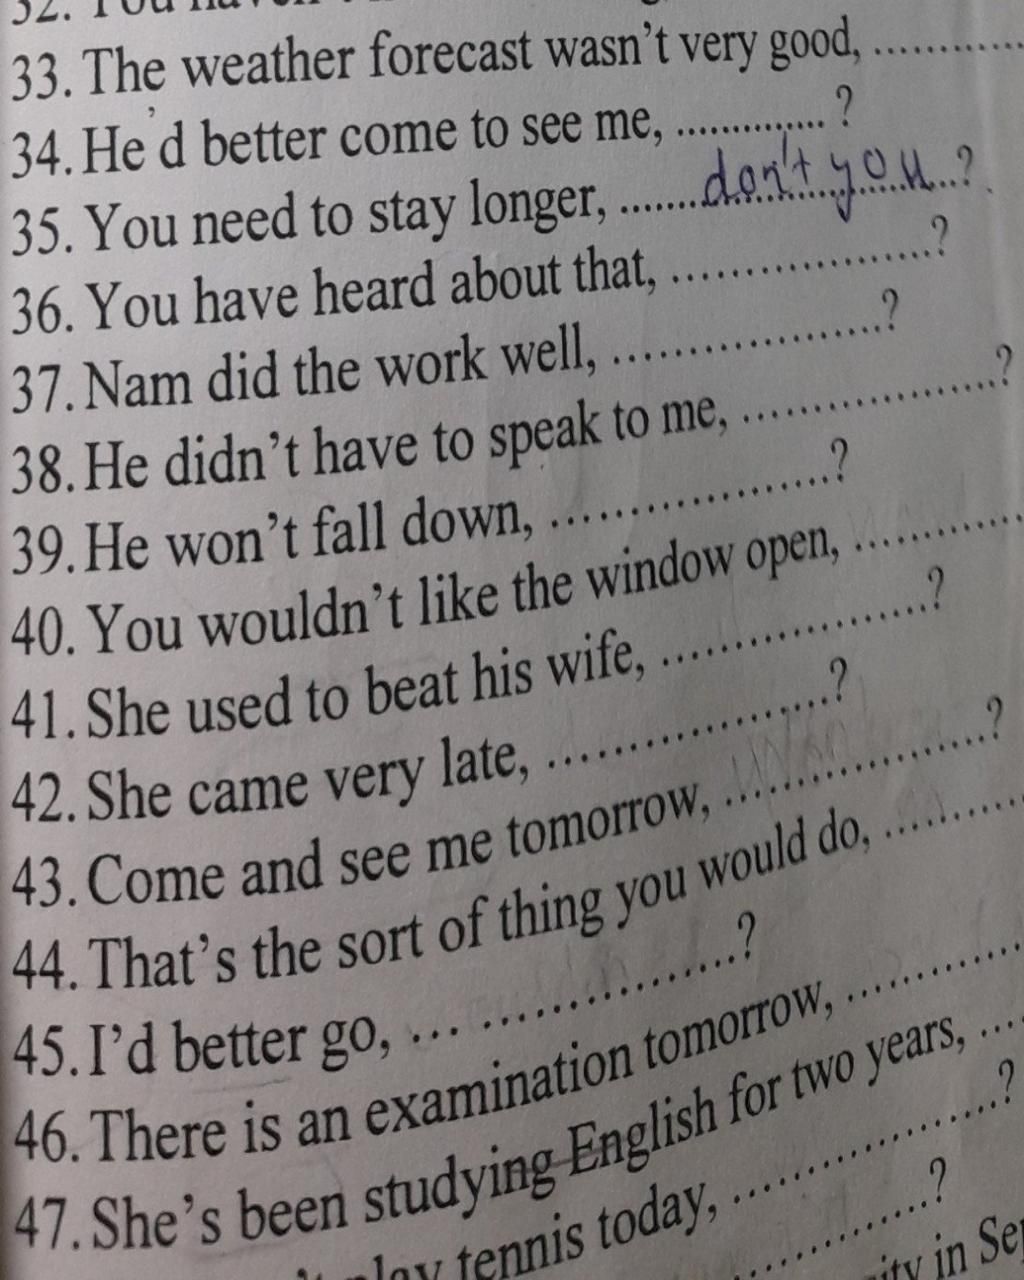 33. The weather forecast wasn't very good, ............
34. He'd better come to see me, .............. ?
35. You need to stay longer, .......don't you...?
36. You have heard about that, ...................?
37. Nam did the work well, ..................?
38. He didn't have to speak to me, ...................?
39. He won't fall down, ..................?
40. You wouldn't like the window open, ............
41. She used to beat his wife, ..................?
42. She came very late, ...................?
43. Come and see me tomorrow, ..................?
44. That's the sort of thing you would do, ..........
45. I'd better go, ... .................?
46. There is an examination tomorrow, ............
47. She's been studying English for two years, ....
tennis today, ..................?
............?
in